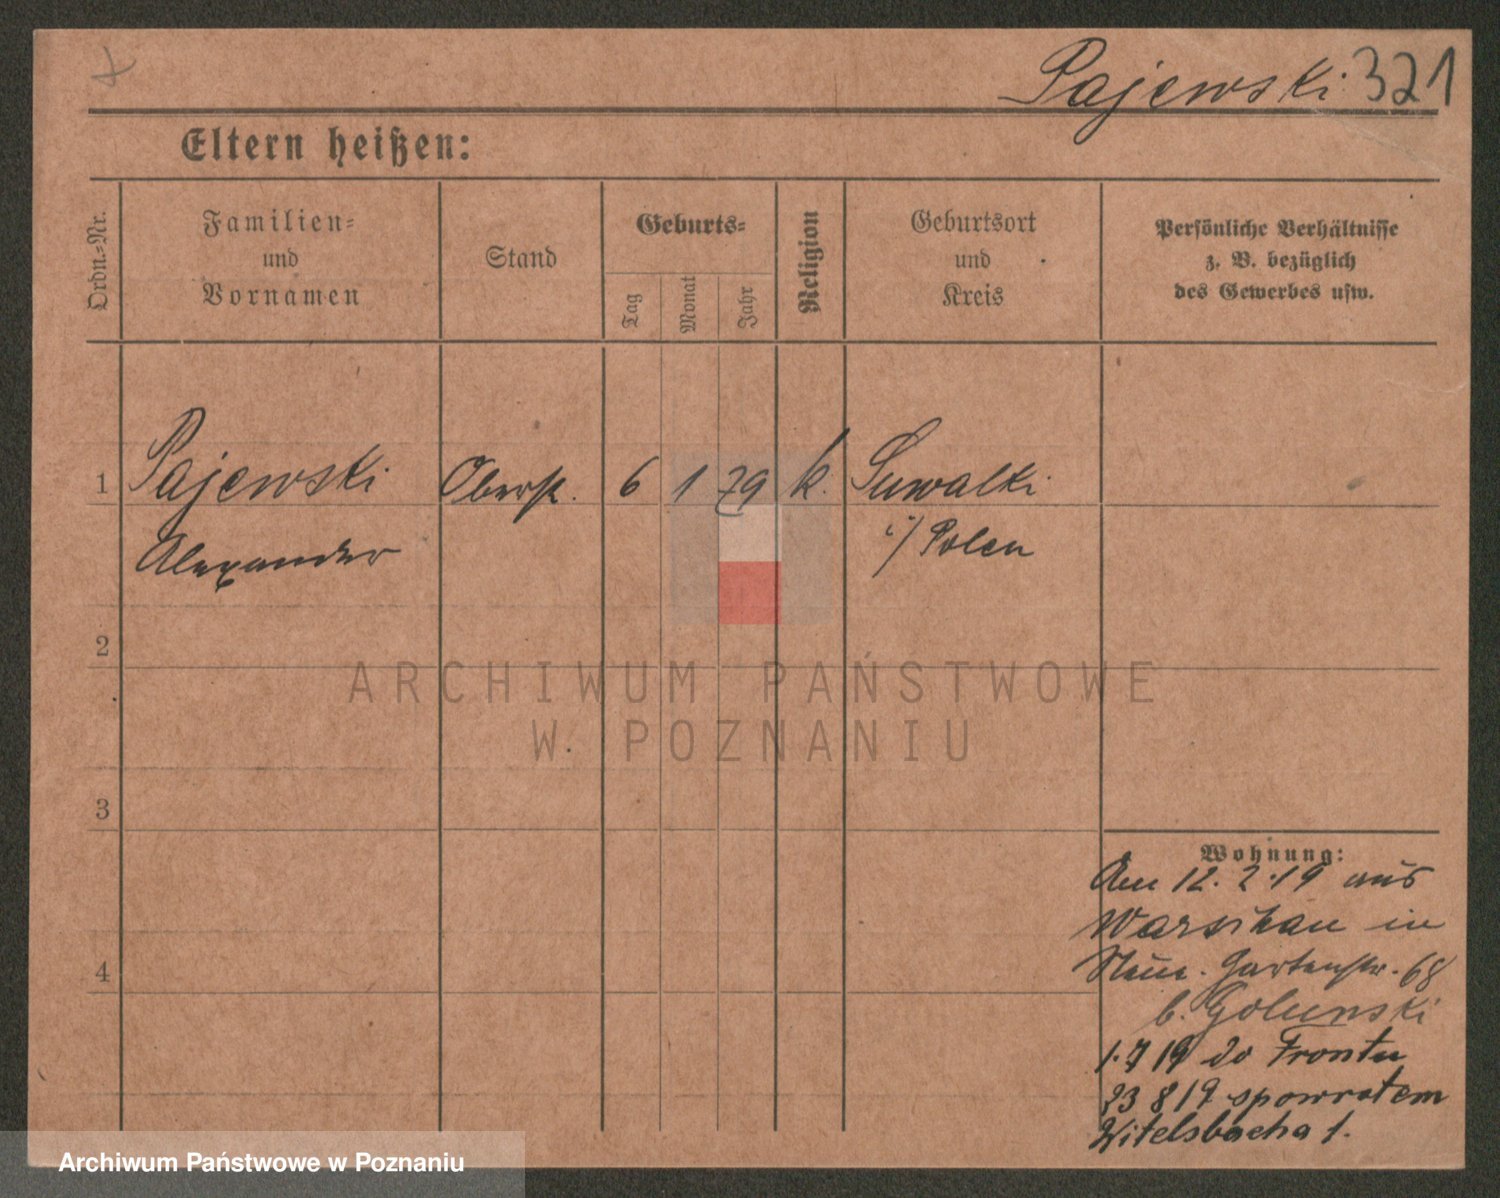 Pajewski 321
Eltern heißen:
Ordn.-Nr.
Familien-
und
Vornamen
Stand
Geburts-
Tag
Monat
Jahr
Religion
Geburtsort
und
Kreis
Persönliche Verhältnisse
z. B. bezüglich
des Gewerbes usw.
1 Pajewski Oberst. 6 1 79 k. Suwalki
Alexander i/ Polen
2
ARCHIWUM PAŃSTWOWE
W POZNANIU
3
Wohnung:
Am 12.2.19 aus
Warschau in
Gartenstr. 68
b. Golunski
1.7 19 do Frontu
23 8 19 spowrotem
Witelsbacha 1.
4
Archiwum Państwowe w Poznaniu